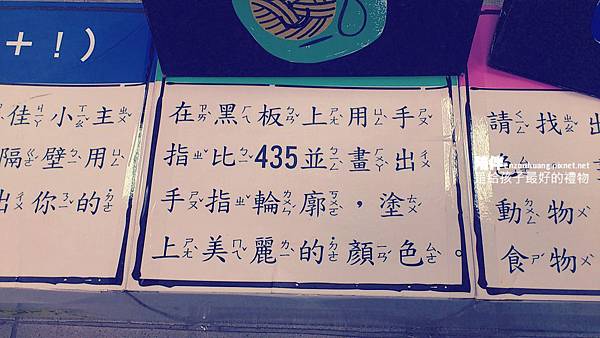 +！)
佳小主
隔壁用
出你的
在黑板上用手
指比435並畫出
手指輪廓，塗
上美麗的顏色。
請找出
動物
食物
是給孩子最好的禮物